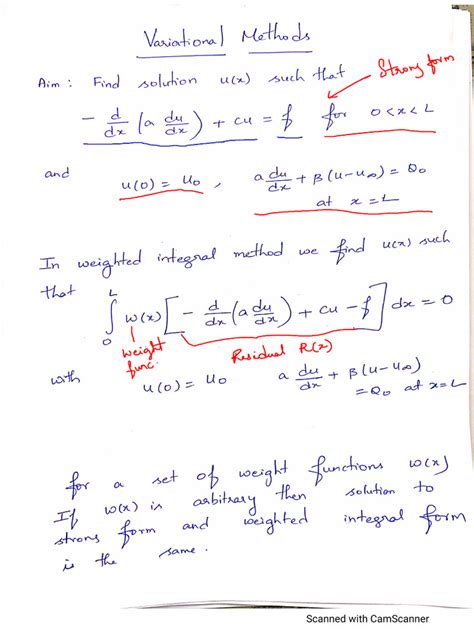 Variational Methods
Aim : Find solution u(x) such that
Strong form
- d/dx (a du/dx) + cu = f for 0<x<L
and u(0) = u₀ , a du/dx + β(u-u∞) = Q₀
at x = L
In weighted integral method we find u(x) such
that ∫₀ᴸ w(x) [ - d/dx (a du/dx) + cu - f ] dx = 0
weight
func.
Residual R(x)
with u(0) = u₀ a du/dx + β(u-u∞)
= Q₀ at x=L
for a set of weight functions w(x)
If w(x) is arbitrary then solution to
strong form and weighted integral form
is the same.
Scanned with CamScanner